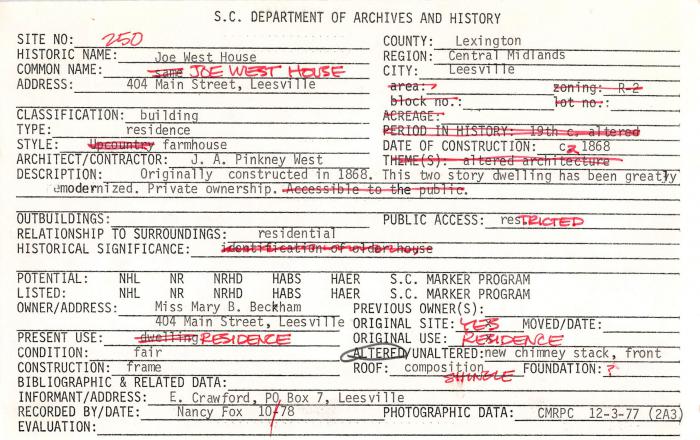 S.C. DEPARTMENT OF ARCHIVES AND HISTORY
SITE NO: 250 COUNTY: Lexington
HISTORIC NAME: Joe West House REGION: Central Midlands
COMMON NAME: same JOE WEST HOUSE CITY: Leesville
ADDRESS: 404 Main Street, Leesville area: zoning: R-2
block no.: lot no.:
CLASSIFICATION: building ACREAGE:
TYPE: residence PERIOD IN HISTORY: 19th c. altered
STYLE: Upcountry farmhouse DATE OF CONSTRUCTION: c. 1868
ARCHITECT/CONTRACTOR: J. A. Pinkney West THEME(S): altered architecture
DESCRIPTION: Originally constructed in 1868. This two story dwelling has been greatly
remodernized. Private ownership. Accessible to the public.
OUTBUILDINGS: PUBLIC ACCESS: resTRICTED
RELATIONSHIP TO SURROUNDINGS: residential
HISTORICAL SIGNIFICANCE: identification of older house
POTENTIAL: NHL NR NRHD HABS HAER S.C. MARKER PROGRAM
LISTED: NHL NR NRHD HABS HAER S.C. MARKER PROGRAM
OWNER/ADDRESS: Miss Mary B. Beckham PREVIOUS OWNER(S):
404 Main Street, Leesville ORIGINAL SITE: YES MOVED/DATE:
PRESENT USE: dwelling RESIDENCE ORIGINAL USE: RESIDENCE
CONDITION: fair ALTERED/UNALTERED: new chimney stack, front
CONSTRUCTION: frame ROOF: composition SHINGLE FOUNDATION: ?
BIBLIOGRAPHIC & RELATED DATA:
INFORMANT/ADDRESS: E. Crawford, PO Box 7, Leesville
RECORDED BY/DATE: Nancy Fox 10/78 PHOTOGRAPHIC DATA: CMRPC 12-3-77 (2A3)
EVALUATION: